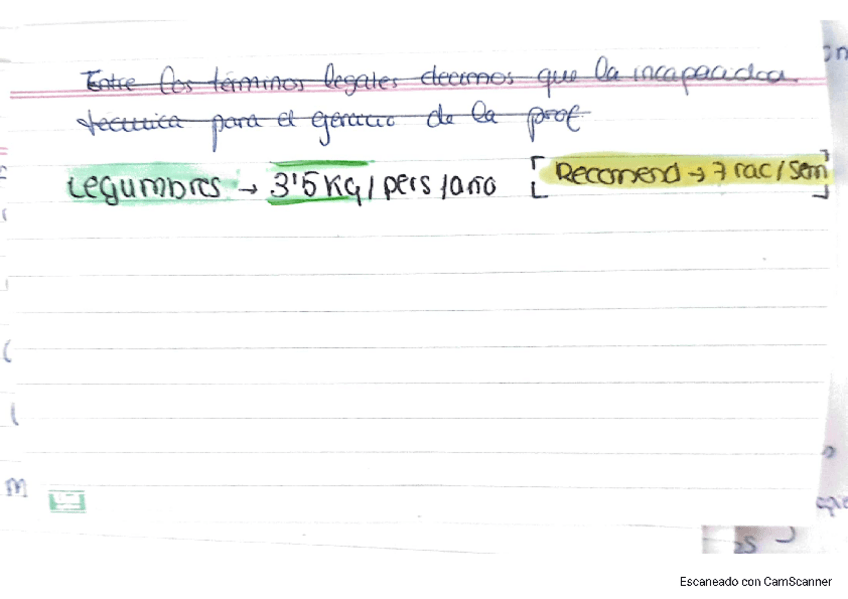 Entre los términos legales decimos que la incapacidad
tecnica para el ejercicio de la prof
Legumbres → 3'5 Kg / pers / año [Recomend → 7 rac / sem]
m
Escaneado con CamScanner